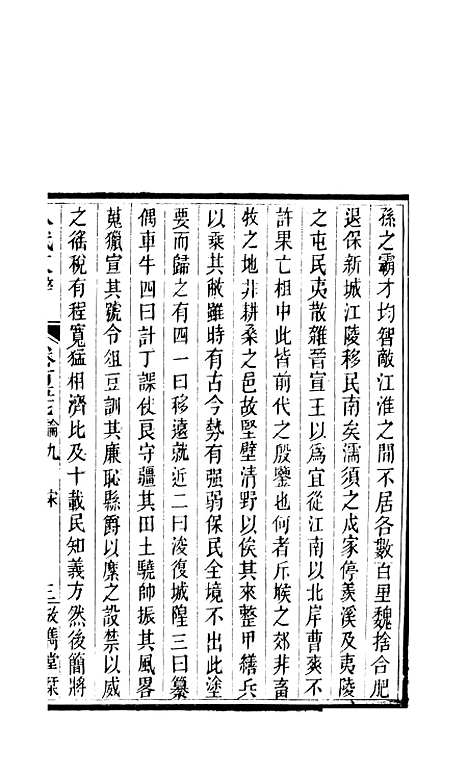 孫之霸才均智敵江淮之間不居各數百里魏捨合肥
退保新城江陵移民南矣濡須之戍家停羨溪及夷陵
之屯民夷散雜晉宣王以為宜從江南以北岸曹爽不
許果亡柤中此皆前代之殷鑒也何者斥候之郊非畜
牧之地非耕桑之邑故堅壁清野以俟其來整甲繕兵
以乘其敝雖時有古今勢有強弱保民全境不出此塗
要而歸之有四一曰移遠就近二曰浚復城隍三曰纂
偶車牛四曰計丁課仗良守疆其田土驍帥振其風畧
蒐獵宣其號令俎豆訓其廉恥縣爵以縻之設禁以威
之徭稅有程寬猛相濟比及十載民知義方然後簡將
論九 宋 三